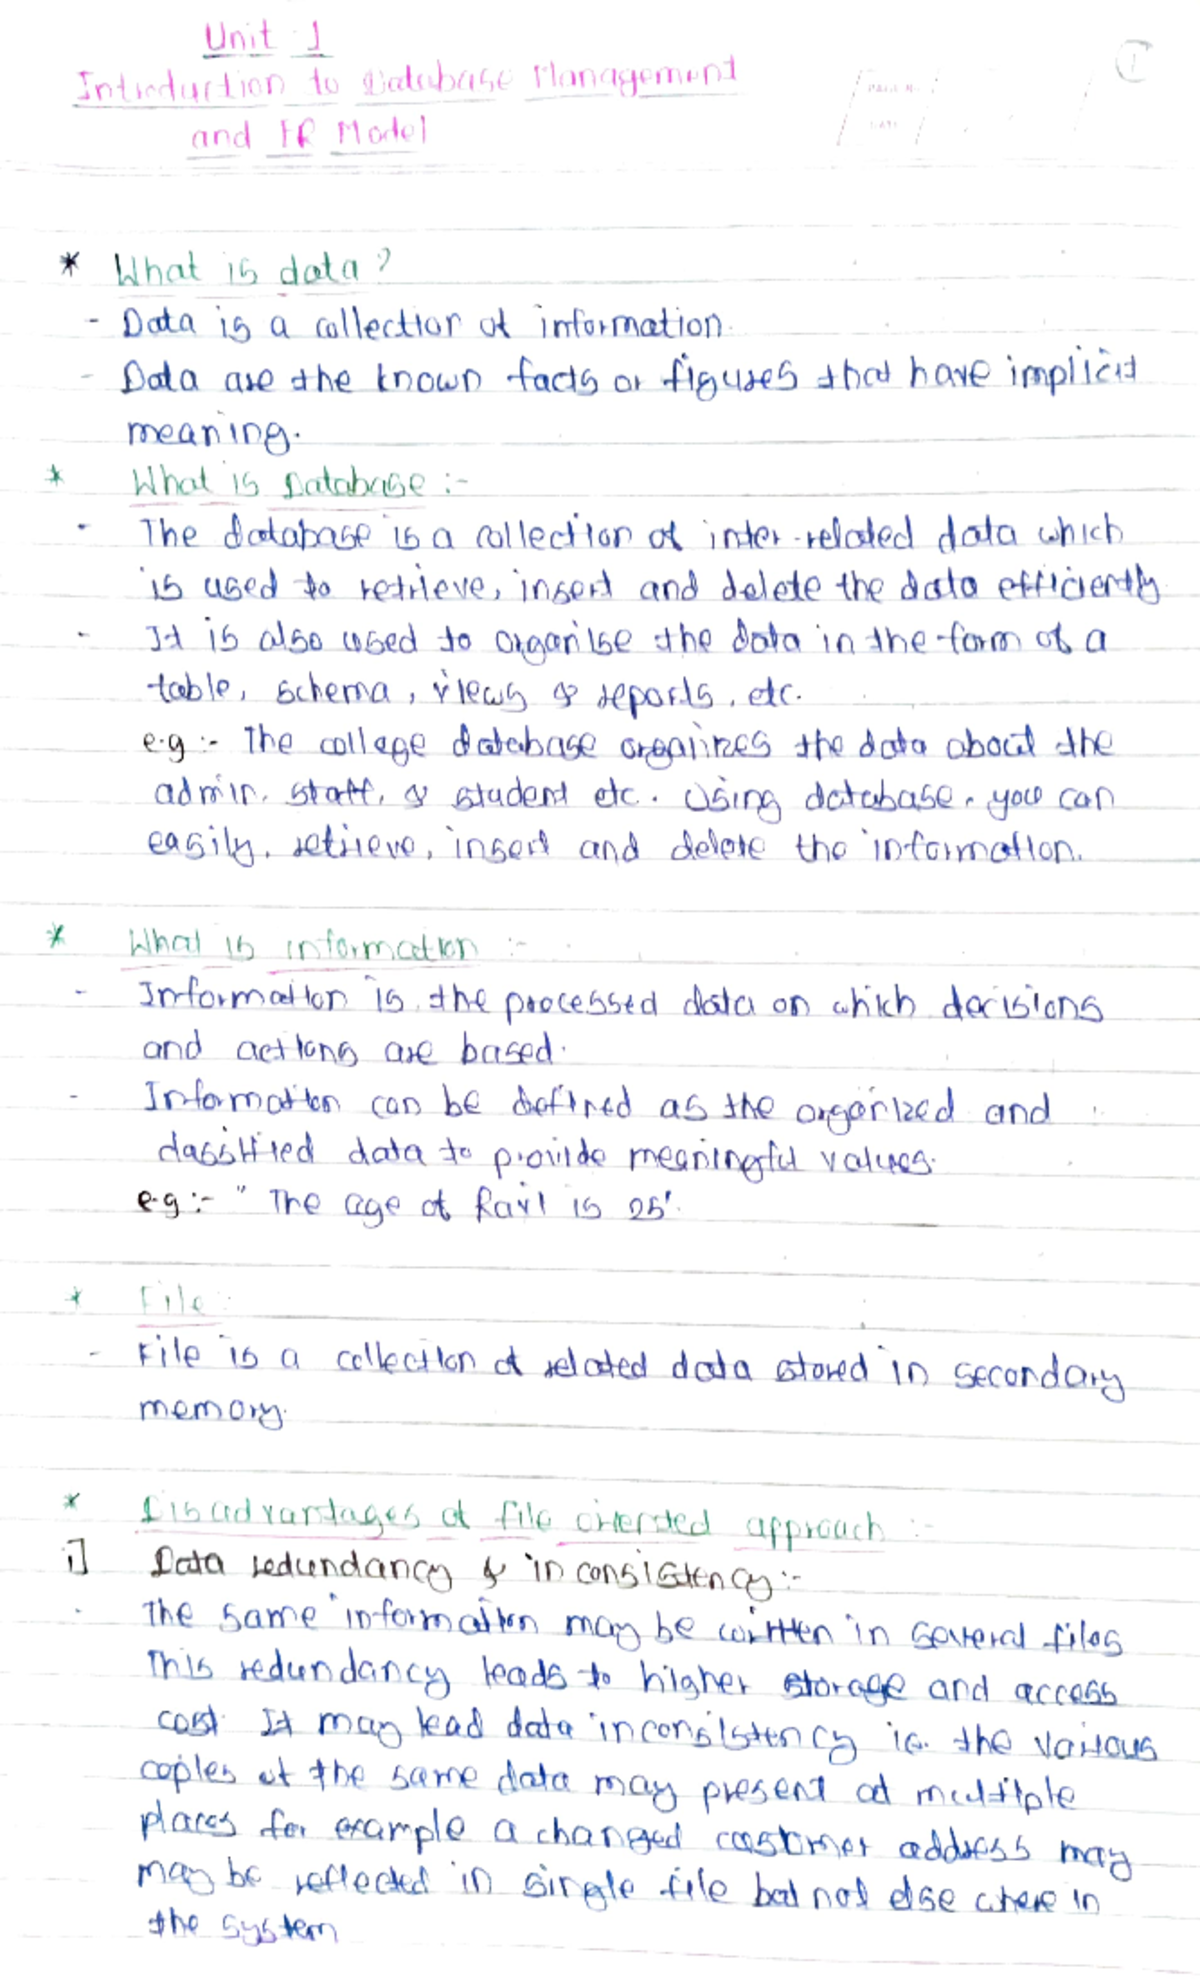 Unit 1
Introduction to Database Management
and ER Model
1
PAGE No.
DATE
* What is data?
- Data is a collection of information.
- Data are the known facts or figures that have implicit
meaning.
* What is Database :-
- The database is a collection of inter-related data which
is used to retrieve, insert and delete the data efficiently
- It is also used to organise the data in the form of a
table, schema, views & reports, etc.
e.g :- The college database organizes the data about the
admin, staff, & student etc. Using database, you can
easily, retrieve, insert and delete the information.
* What is information :-
- Information is the processed data on which decisions
and actions are based.
- Information can be defined as the organized and
classified data to provide meaningful values.
e.g :- " The age of Ravi is 25".
* File :
- File is a collection of related data stored in secondary
memory.
* Disadvantages of file oriented approach :-
i] Data redundancy & in consistency:-
- The same information may be written in several files
This redundancy leads to higher storage and access
cost. It may lead data inconsistency ie. the various
copies of the same data may present at multiple
places for example a changed customer address may
may be reflected in single file but not else where in
the system